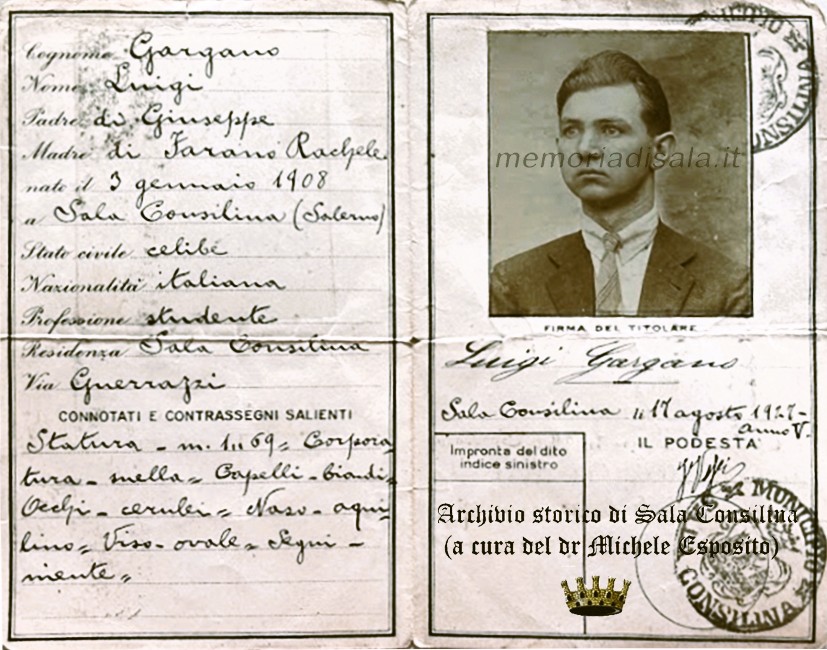 Cognome Gargano
Nome Luigi
Padre di Giuseppe
Madre di Farano Rachele
nato il 3 gennaio 1908
a Sala Consilina (Salerno)
Stato civile celibe
Nazionalità italiana
Professione studente
Residenza Sala Consilina
Via Guerrazzi
CONNOTATI E CONTRASSEGNI SALIENTI
Statura - m. 1,,69 = Corpora
tura - snella = Capelli - biondi =
Occhi - cerulei = Naso - aqui
lino = Viso - ovale = Segni -
niente =
MUNICIPIO
CONSILINA
memoriadisala.it
FIRMA DEL TITOLARE
Luigi Gargano
Sala Consilina li 17 agosto 1927 -
Anno V.
IL PODESTÀ
Impronta del dito
indice sinistro
Archivio storico di Sala Consilina
(a cura del dr Michele Esposito)
MUNICIPIO
CONSILINA